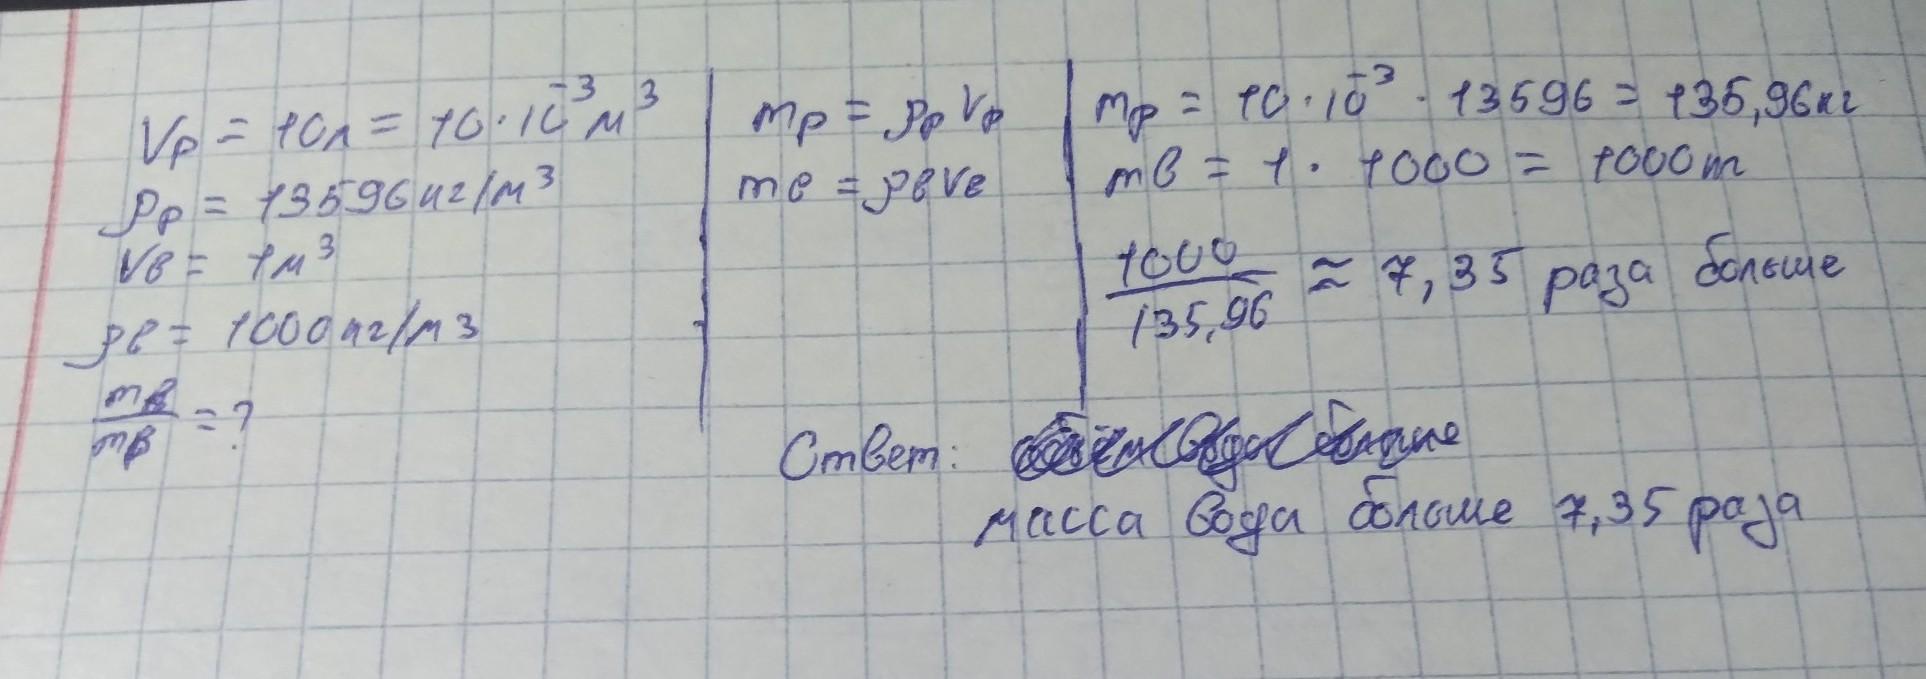 Vр = 10л = 10·10⁻³м³
ρр = 13596кг/м³
Vв = 1м³
ρв = 1000кг/м3
mв/mв = ?
mр = ρрVр
mв = ρвVв
mр = 10·10⁻³·13596 = 135,96кг
mв = 1·1000 = 1000т
1000/135,96 ≈ 7,35 раза больше
Ответ:
масса вода больше 7,35 раза